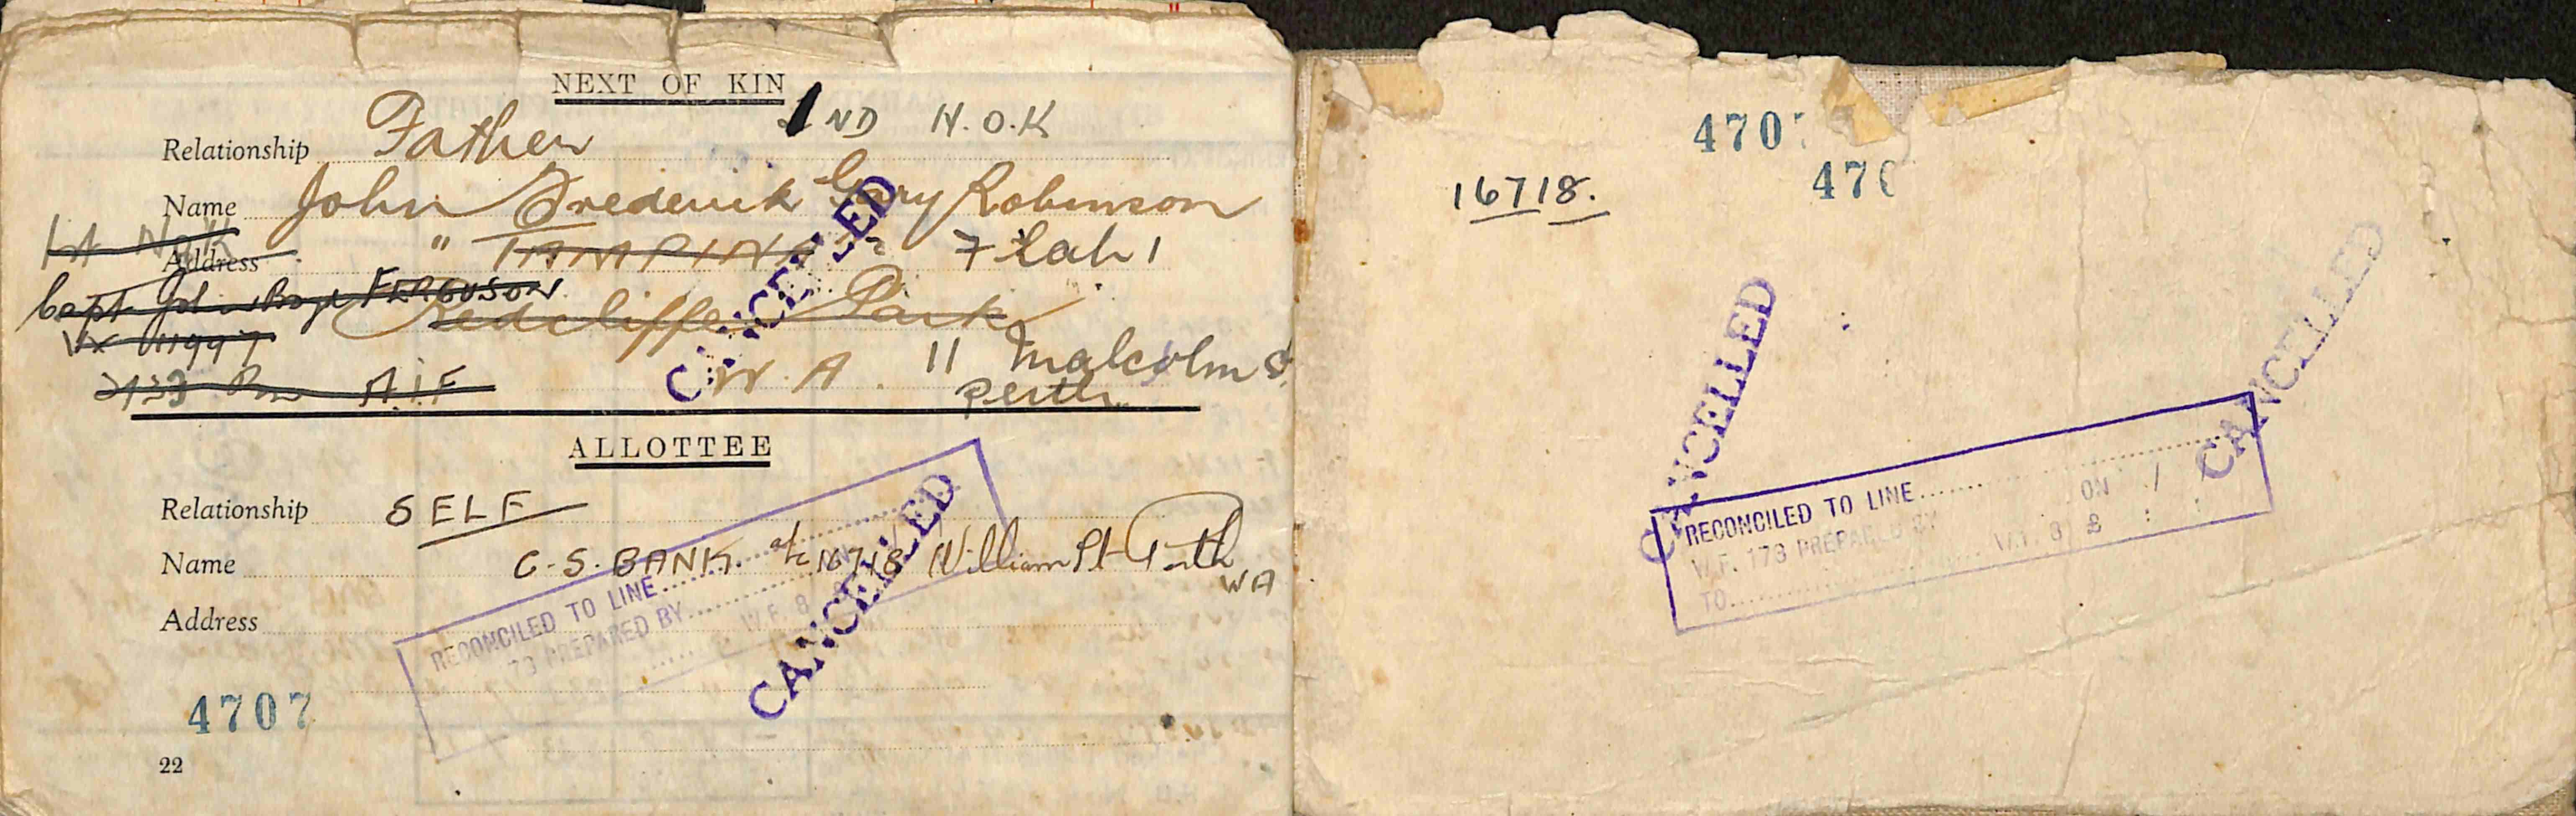 NEXT OF KIN
ND N.O.K
Relationship Father
Name John Frederick Gary Robinson
1st NOK
Address " TAMPINA 7 Flat 1
Capt John Boyd FERGUSON
Redcliffe Park
VX
W.A. 11 Malcolm S
A.I.F Perth
CANCELLED
ALLOTTEE
Relationship SELF
Name C.S. BANK. a/c 16718 William St Perth
WA
Address
RECONCILED TO LINE
73 PREPARED BY
W.F. 8
CANCELLED
4707
22
470
470
16718.
CANCELLED
CANCELLED
RECONCILED TO LINE ON / /
W.F. 173 PREPARED BY
TO W.F. 8 £ : :